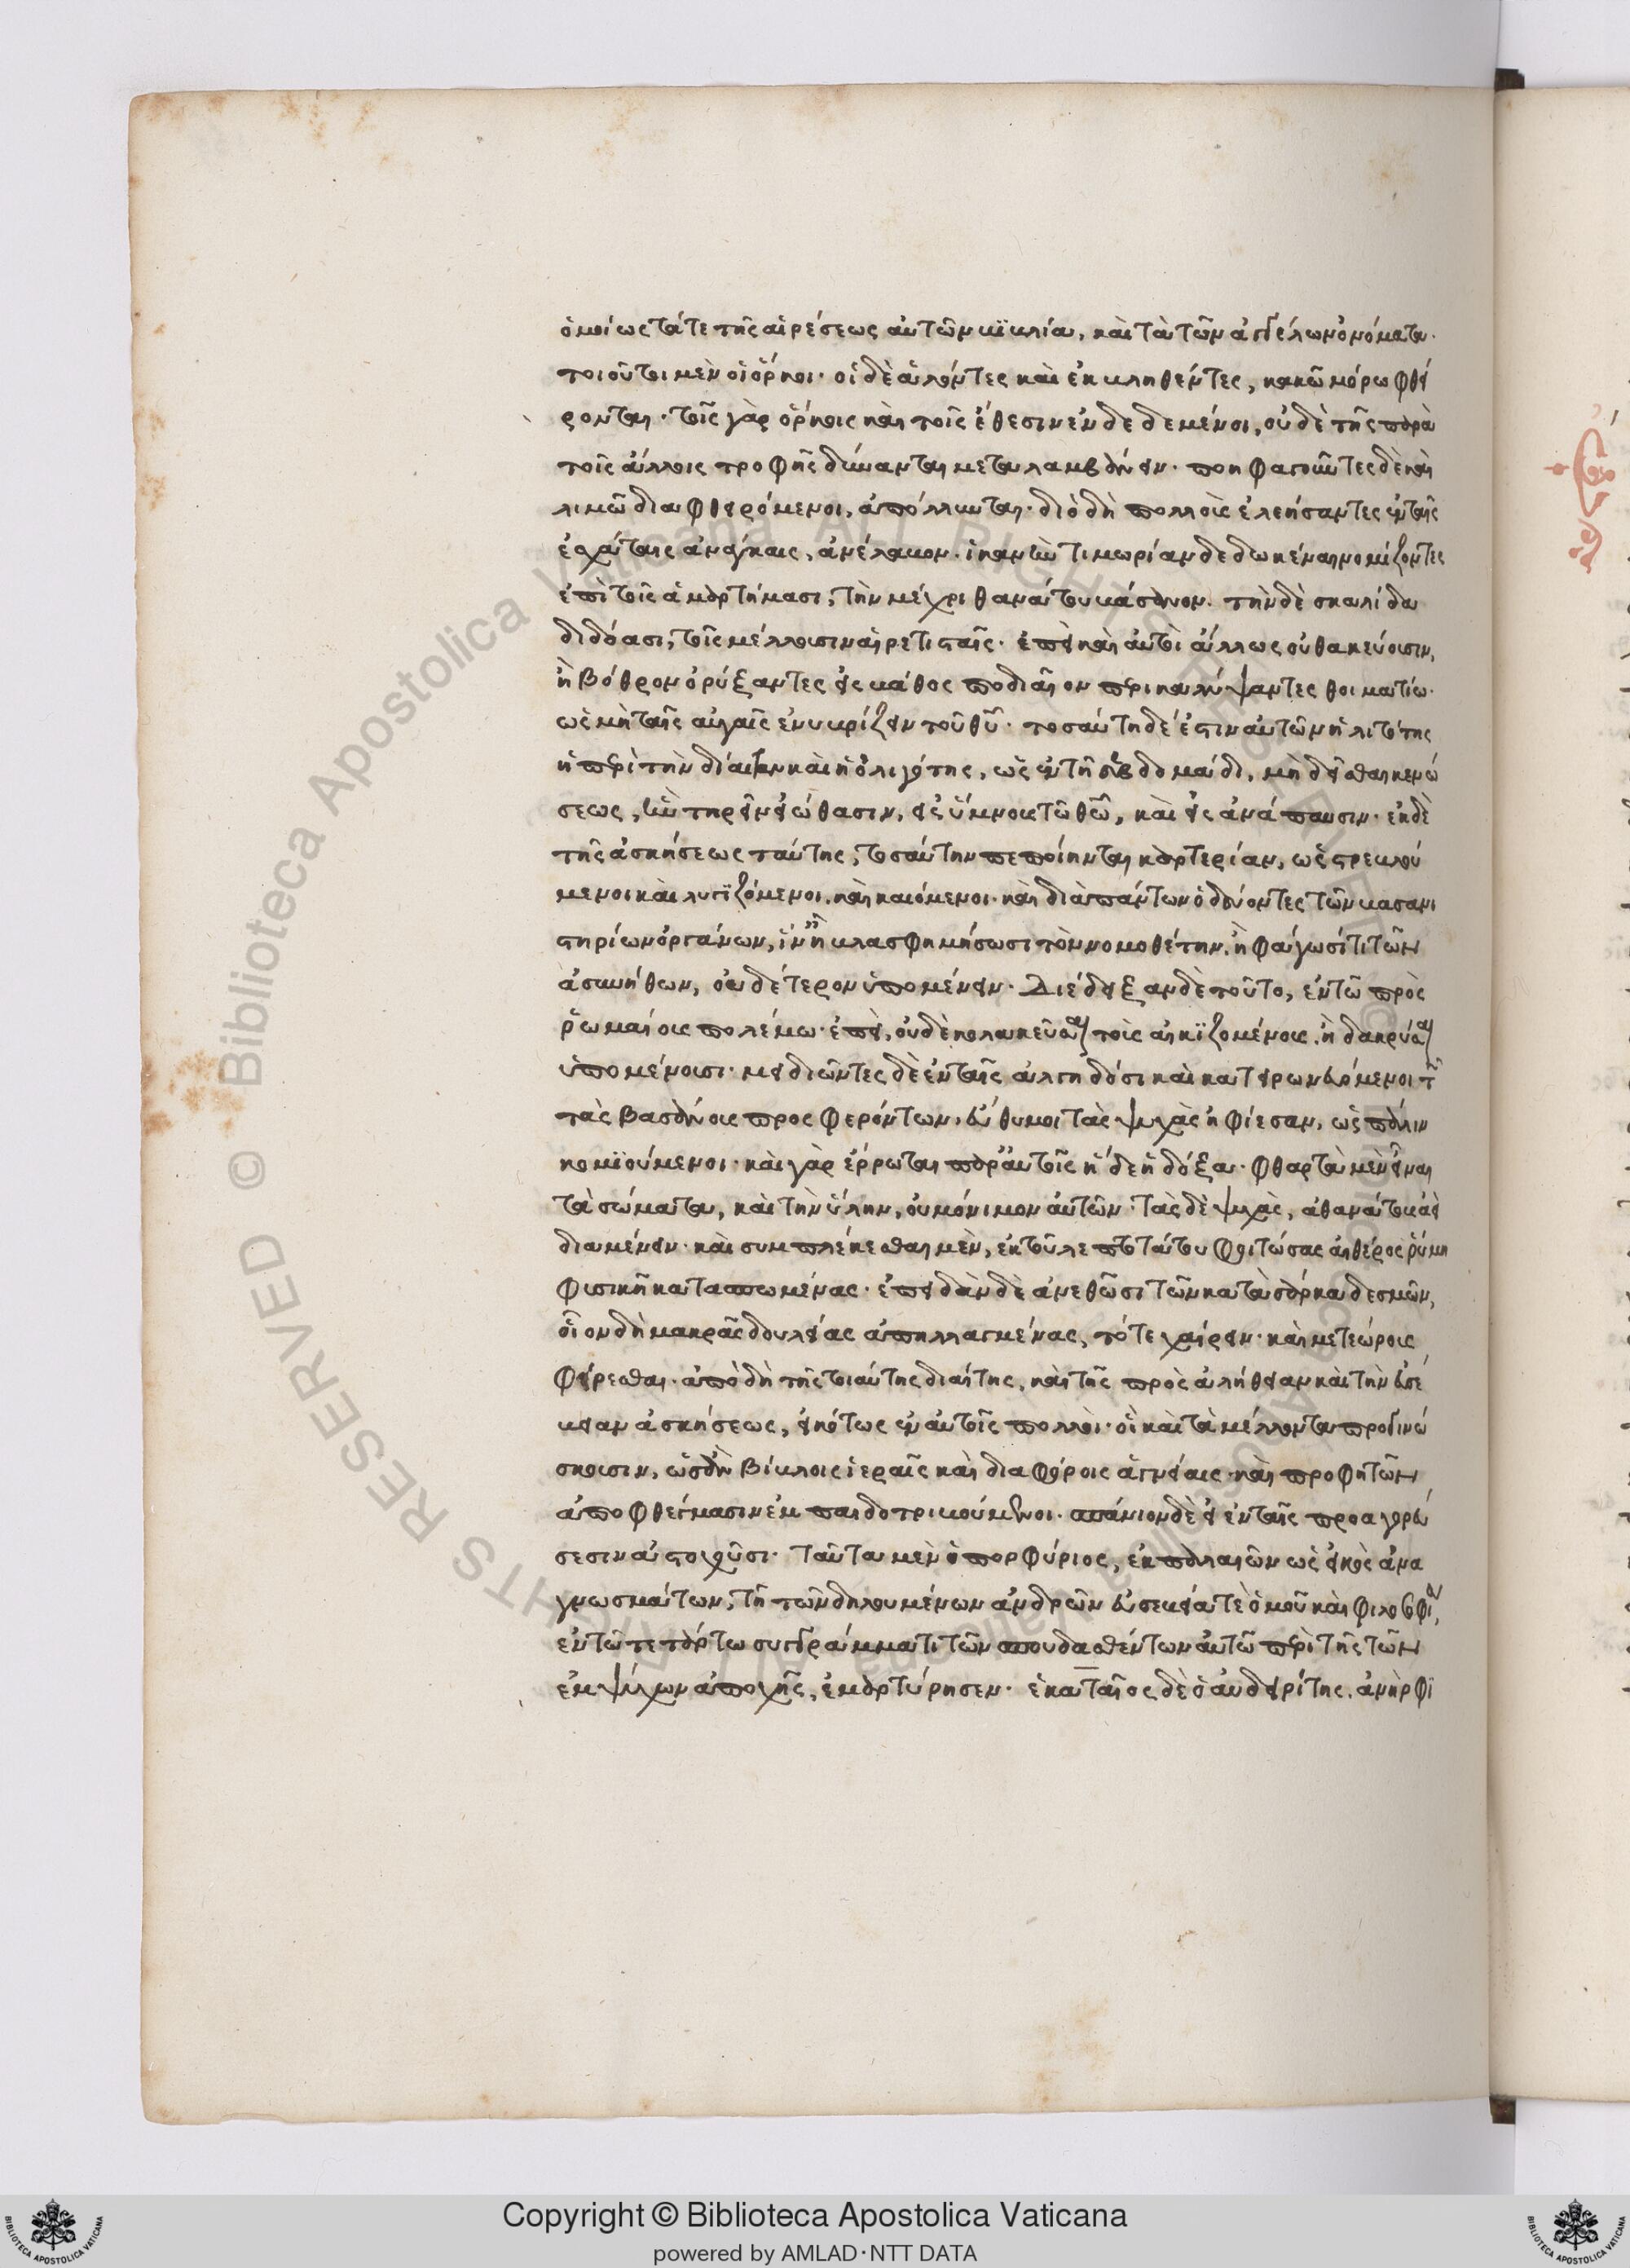 ὁμοίως τά τε τῆς αἱρέσεως αὐτῶν βιβλία, καὶ τὰ τῶν ἀγγέλων ὀνόματα.
τοιοῦτοι μὲν οἱ ὅρκοι. οἱ δὲ ἁλόντες καὶ ἐκβληθέντες, κακῶ μόρω φθεί
ρονται. τοῖς γὰρ ὅρκοις καὶ τοῖς ἔθεσιν ἐνδεδεμένοι, οὐδὲ τῆς παρὰ
τοῖς ἄλλοις τροφῆς δύνανται μεταλαμβάνειν. ποηφαγοῦντες δὲ καὶ
λιμῶ διαφθειρόμενοι, ἀπόλλυνται. διὸ δὴ πολλοὺς ἐλεήσαντες ἐν ταῖς
ἐσχάταις ἀνάγκαις, ἀνέλαβον. ἱκανὴν τιμωρίαν δεδωκέναι νομίζοντες
ἐπὶ τοῖς ἁμαρτήμασι, τὴν μέχρι θανάτου βάσανον. τὴν δὲ σκαλίδα
διδόασι, τοῖς μέλλουσιν αἱρετισταῖς. ἐπεὶ καὶ αὐτοὶ ἄλλως οὐ θακεύουσιν,
ἢ βόθρον ὀρύξαντες εἰς βάθος ποδιαῖον περικαλύψαντες θοιματίω.
ὡς μὴ ταῖς αὐγαῖς ἐνυβρίζειν τοῦ θυ. τοσαύτη δέ ἐστιν αὐτῶν ἡ λιτότης
ἡ περὶ τὴν δίαιταν καὶ ἡ ὀλιγότης, ὡς ἐν τῆ ἑβδομάδι, μὴ δεῖσθαι κενώ
σεως, ἣν τηρεῖν εἰώθασιν, εἰς ὕμνους τῶ θω, καὶ εἰς ἀνάπαυσιν. ἐκ δὲ
τῆς ἀσκήσεως ταύτης, τοσαύτην πεποίηνται καρτερίαν, ὡς στρεβλού
μενοι καὶ λυγϊζόμενοι. καὶ καιόμενοι. καὶ διὰ πάντων ὁδεύοντες τῶν βασανι
στηρίων ὀργάνων, ἵν' ἢ βλασφημήσωσι τὸν νομοθέτην. ἢ φάγωσί τι τῶν
ἀσυνήθων, οὐδέτερον ὑπομένειν. Διέδειξαν δὲ τοῦτο, ἐν τῶ πρὸς
ῥωμαίους πολέμω. ἐπεὶ, οὐδὲ κολακεῦσαι τοὺς αἰκϊζομένους. ἢ δακρύσαι
ὑπομένουσι. μειδιῶντες δὲ ἐν ταῖς ἀλγηδόσι καὶ κατειρωνευόμενοι τῶν
τὰς βασάνους προσφερόντων, εὔθυμοι τὰς ψυχὰς ἠφίεσαν, ὡς πάλιν
κομϊούμενοι. καὶ γὰρ ἔρρωται παρ' αὐτοῖς ἥδε ἡ δόξα. φθαρτὰ μὲν εἶναι
τὰ σώματα, καὶ τὴν ὕλην, οὐ μόνιμον αὐτῶν. τὰς δὲ ψυχὰς, ἀθανάτους ἀεὶ
διαμένειν. καὶ συμπλέκεσθαι μὲν, ἐκ τοῦ λεπτοτάτου φοιτώσας αἰθέρος ῥύμη
φυσικῆ κατασπωμένας. ἐπειδὰν δὲ ἀνεθῶσι τῶν κατὰ σάρκα δεσμῶν,
οἷον δὴ μακρᾶς δουλείας ἀπηλλαγμένας, τότε χαίρειν. καὶ μετεώρους
φέρεσθαι. ἀπὸ δὴ τῆς τοιαύτης διαίτης, καὶ τῆς πρὸς ἀλήθειαν καὶ τὴν εὐσέ
βειαν ἀσκήσεως, εἰκότως ἐν αὐτοῖς πολλοὶ. οἳ καὶ τὰ μέλλοντα προγινώ
σκουσιν, ὡσὰν βίβλοις ἱεραῖς καὶ διαφόροις ἁγνείαις καὶ προφητῶν
ἀποφθέγμασιν ἐμπαιδοτριβούμενοι. σπάνιον δὲ εἰ ἐν ταῖς προαγορεύ
σεσιν ἀστοχοῦσι. ταῦτα μὲν ὁ πορφύριος, ἐκ παλαιῶν ὡς εἰκὸς ἀνα
γνωσμάτων, τῆ τῶν δηλουμένων ἀνδρῶν εὐσεβεία τὲ ὁμοῦ καὶ φιλοσοφία,
ἐν τῶ τετάρτω συγγράμματι τῶν σπουδασθέντων αὐτῶ περὶ τῆς τῶν
ἐμψύχων ἀποχῆς, ἐμαρτύρησεν. ἑκαταῖος δὲ ὁ αὐδειρίτης. ἀνὴρ φϊ